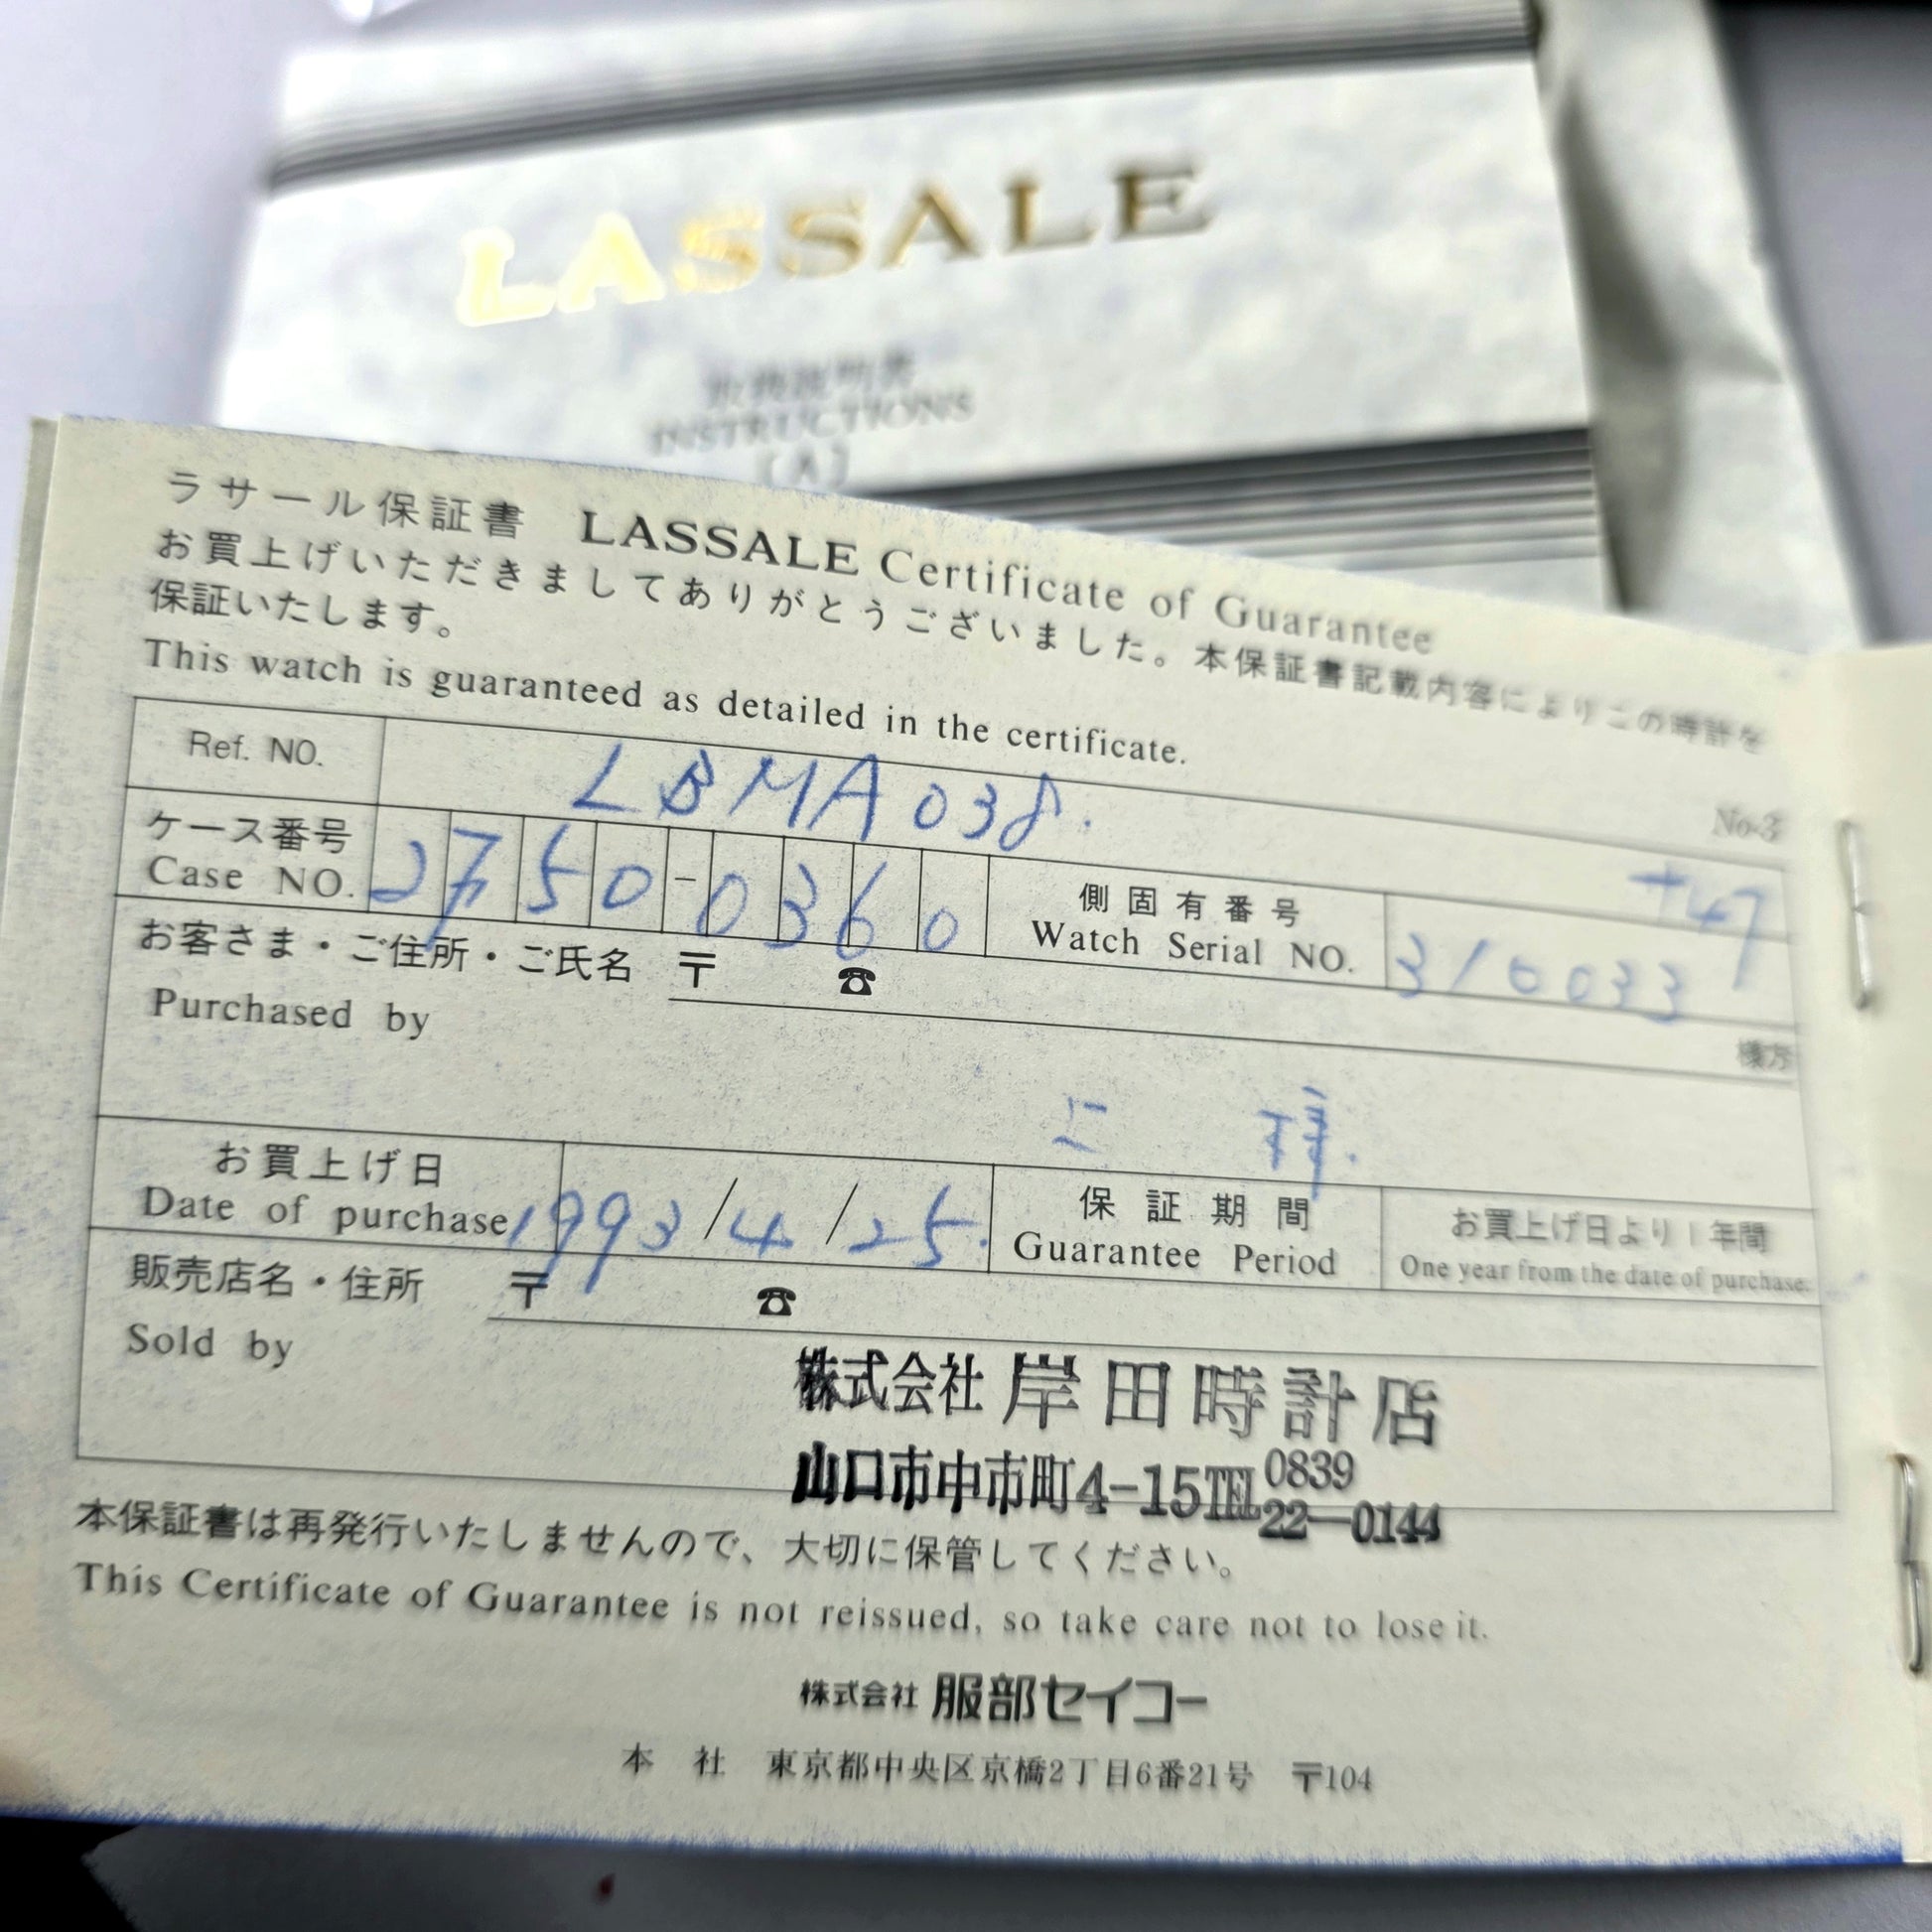 LASSALE
取扱説明書
INSTRUCTIONS
〔A〕
ラサール保証書 LASSALE Certificate of Guarantee
お買上げいただきましてありがとうございました。本保証書記載内容によりこの時計を
保証いたします。
This watch is guaranteed as detailed in the certificate.
Ref. NO. LBMA038.
No-3
ケース番号
Case NO. 2750-0360
側固有番号
Watch Serial NO. 310033
お客さま・ご住所・ご氏名 〒 ☎
Purchased by
様方
様.
お買上げ日
Date of purchase 1993/4/25.
保証期間
Guarantee Period
お買上げ日より1年間
One year from the date of purchase.
販売店名・住所 〒 ☎
Sold by
株式会社 岸田時計店
山口市中市町4-15 TEL 0839
22-0144
本保証書は再発行いたしませんので、大切に保管してください。
This Certificate of Guarantee is not reissued, so take care not to lose it.
株式会社 服部セイコー
本 社 東京都中央区京橋2丁目6番21号 〒104